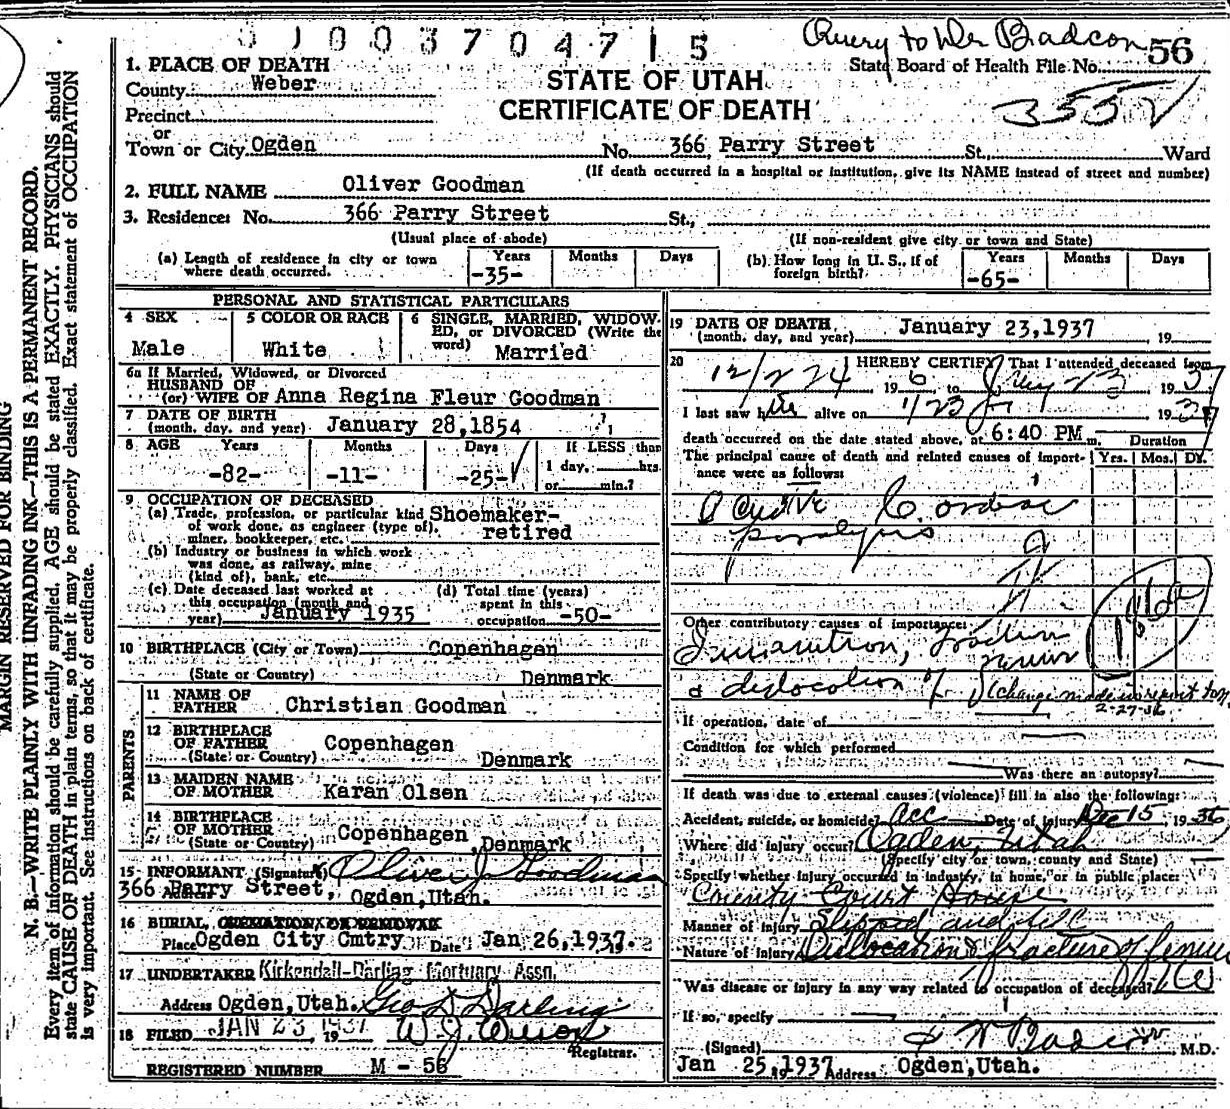 Query to Dr Badcon
56
State Board of Health File No.
STATE OF UTAH
CERTIFICATE OF DEATH
1. PLACE OF DEATH
County Weber
Precinct
or
Town or City Ogden No. 366 Parry Street St., Ward
(If death occurred in a hospital or institution, give its NAME instead of street and number)
2. FULL NAME Oliver Goodman
3. Residence: No. 366 Parry Street St.,
(Usual place of abode) (If non-resident give city or town and State)
(a) Length of residence in city or town where death occurred. Years -35- Months Days
(b) How long in U. S., if of foreign birth? Years -65- Months Days
PERSONAL AND STATISTICAL PARTICULARS
4 SEX Male
5 COLOR OR RACE White
6 SINGLE, MARRIED, WIDOWED, or DIVORCED (Write the word) Married
6a If Married, Widowed, or Divorced
HUSBAND OF
(or) WIFE OF Anna Regina Fleur Goodman
7 DATE OF BIRTH
(month, day, and year) January 28,1854
8 AGE Years -82- Months -11- Days -25- If LESS than 1 day, hrs. or min.?
9 OCCUPATION OF DECEASED
(a) Trade, profession, or particular kind of work done, as engineer (type of), miner, bookkeeper, etc. Shoemaker-retired
(b) Industry or business in which work was done, as railway, mine (kind of), bank, etc.
(c) Date deceased last worked at this occupation (month and year) January 1935
(d) Total time (years) spent in this occupation -50-
10 BIRTHPLACE (City or Town) Copenhagen
(State or Country) Denmark
PARENTS
11 NAME OF FATHER Christian Goodman
12 BIRTHPLACE OF FATHER Copenhagen
(State or Country) Denmark
13 MAIDEN NAME OF MOTHER Karan Olsen
14 BIRTHPLACE OF MOTHER Copenhagen,
(State or Country) Denmark
15 INFORMANT (Signature) Oliver J. Goodman
Address 366 Parry Street, Ogden,Utah.
16 BURIAL, CREMATION OR REMOVAL
Place Ogden City Cmtry Date Jan 26,1937.
17 UNDERTAKER Kirkendall-Darling Mortuary Assn.
Address Ogden,Utah. Geo S Darling
18 FILED JAN 23 1937 19
Registrar.
REGISTERED NUMBER M - 56
19 DATE OF DEATH
(month, day, and year) January 23,1937 19
20 I HEREBY CERTIFY That I attended deceased from
12/22 1936 to Jany 23 1937
I last saw him alive on 1/23 1937
death occurred on the date stated above, at 6:40 PM m. Duration
The principal cause of death and related causes of importance were as follows: Yrs. Mos. Dy.
Acute Cardiac
paralysis
Other contributory causes of importance:
Inanition, fracture
dislocation of
(change made in report
2-27-36
If operation, date of
Condition for which performed
Was there an autopsy?
If death was due to external causes (violence) fill in also the following:
Accident, suicide, or homicide? Acc Date of injury Dec 15, 1936
Where did injury occur? Ogden, Utah
(Specify city or town, county and State)
Specify whether injury occurred in industry, in home, or in public place:
County Court House
Manner of injury Slipped and fell
Nature of injury Dislocation & fracture of femur
Was disease or injury in any way related to occupation of deceased?
If so, specify
(Signed) Badcon M.D.
Jan 25, 1937 Address Ogden,Utah.
MARGIN RESERVED FOR BINDING
N. B.—WRITE PLAINLY WITH UNFADING INK—THIS IS A PERMANENT RECORD.
Every item of information should be carefully supplied. AGE should be stated EXACTLY. PHYSICIANS should
state CAUSE OF DEATH in plain terms, so that it may be properly classified. Exact statement of OCCUPATION
is very important. See instructions on back of certificate.